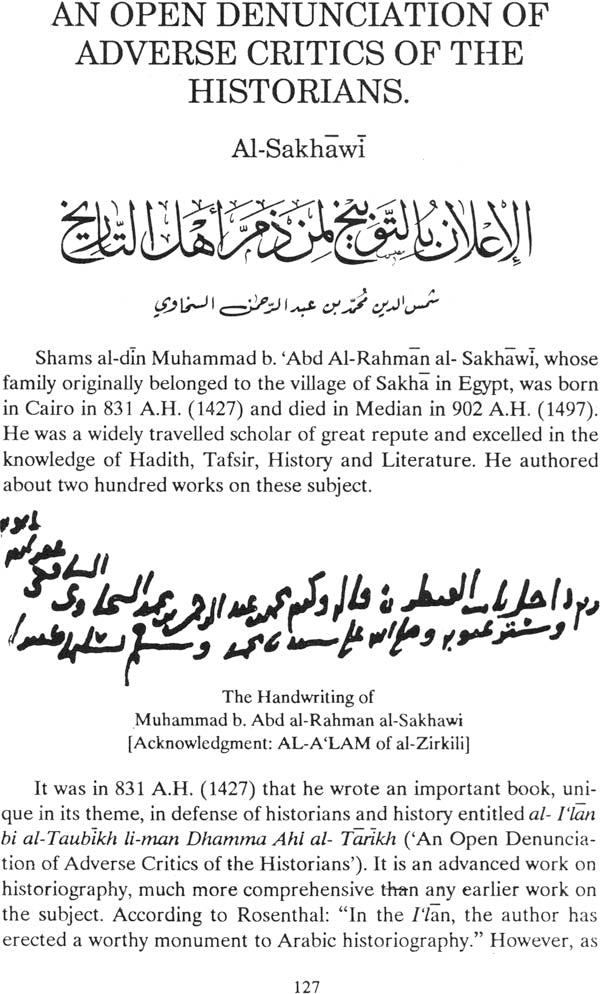 AN OPEN DENUNCIATION OF
ADVERSE CRITICS OF THE
HISTORIANS.
Al-Sakhāwī
الإِعْلَان بِالتَّوْبِيخ لِمَنْ ذَمَّ أَهْلَ التَّارِيخ
شمس الدين محمّد بن عبد الرّحمٰن السخاوي
Shams al-dīn Muhammad b. ‘Abd Al-Rahmān al- Sakhāwī, whose
family originally belonged to the village of Sakhā in Egypt, was born
in Cairo in 831 A.H. (1427) and died in Median in 902 A.H. (1497).
He was a widely travelled scholar of great repute and excelled in the
knowledge of Hadith, Tafsir, History and Literature. He authored
about two hundred works on these subject.
قاله وكتبه محمد بن عبد الرحمن بن محمد السخاوي الشافعي
The Handwriting of
Muhammad b. Abd al-Rahman al-Sakhawi
[Acknowledgment: AL-A‘LAM of al-Zirkili]
It was in 831 A.H. (1427) that he wrote an important book, uni-
que in its theme, in defense of historians and history entitled al- I‘lān
bi al-Taubīkh li-man Dhamma Ahl al- Tārīkh (‘An Open Denuncia-
tion of Adverse Critics of the Historians’). It is an advanced work on
historiography, much more comprehensive than any earlier work on
the subject. According to Rosenthal: “In the I‘lān, the author has
erected a worthy monument to Arabic historiography.” However, as
127